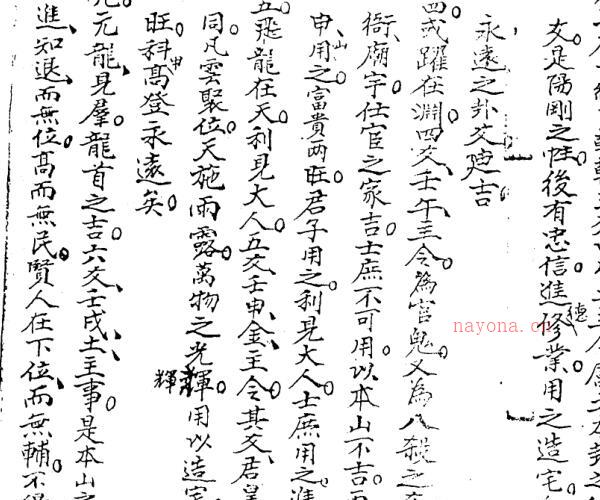 爻是陽剛之性後有忠信進德修業用之造宅
永遠之卦爻迪吉
四或躍在淵四爻壬午主令為官鬼又為八殺之
衙廟宇仕宦之家吉士庶不可用以本山不吉
申山用之富貴两旺君子用之利見大人士庶用之進
五飛龍在天利見大人五爻壬申金主令其爻居
同凡雲聚位天施雨露萬物之光輝用以造宅
輝
旺科甲高登永遠矣
元龍見羣龍首之吉六爻壬戌土主事是本山之
進知退而無位高而無民賢人在下位而無輔不
nayona.cn